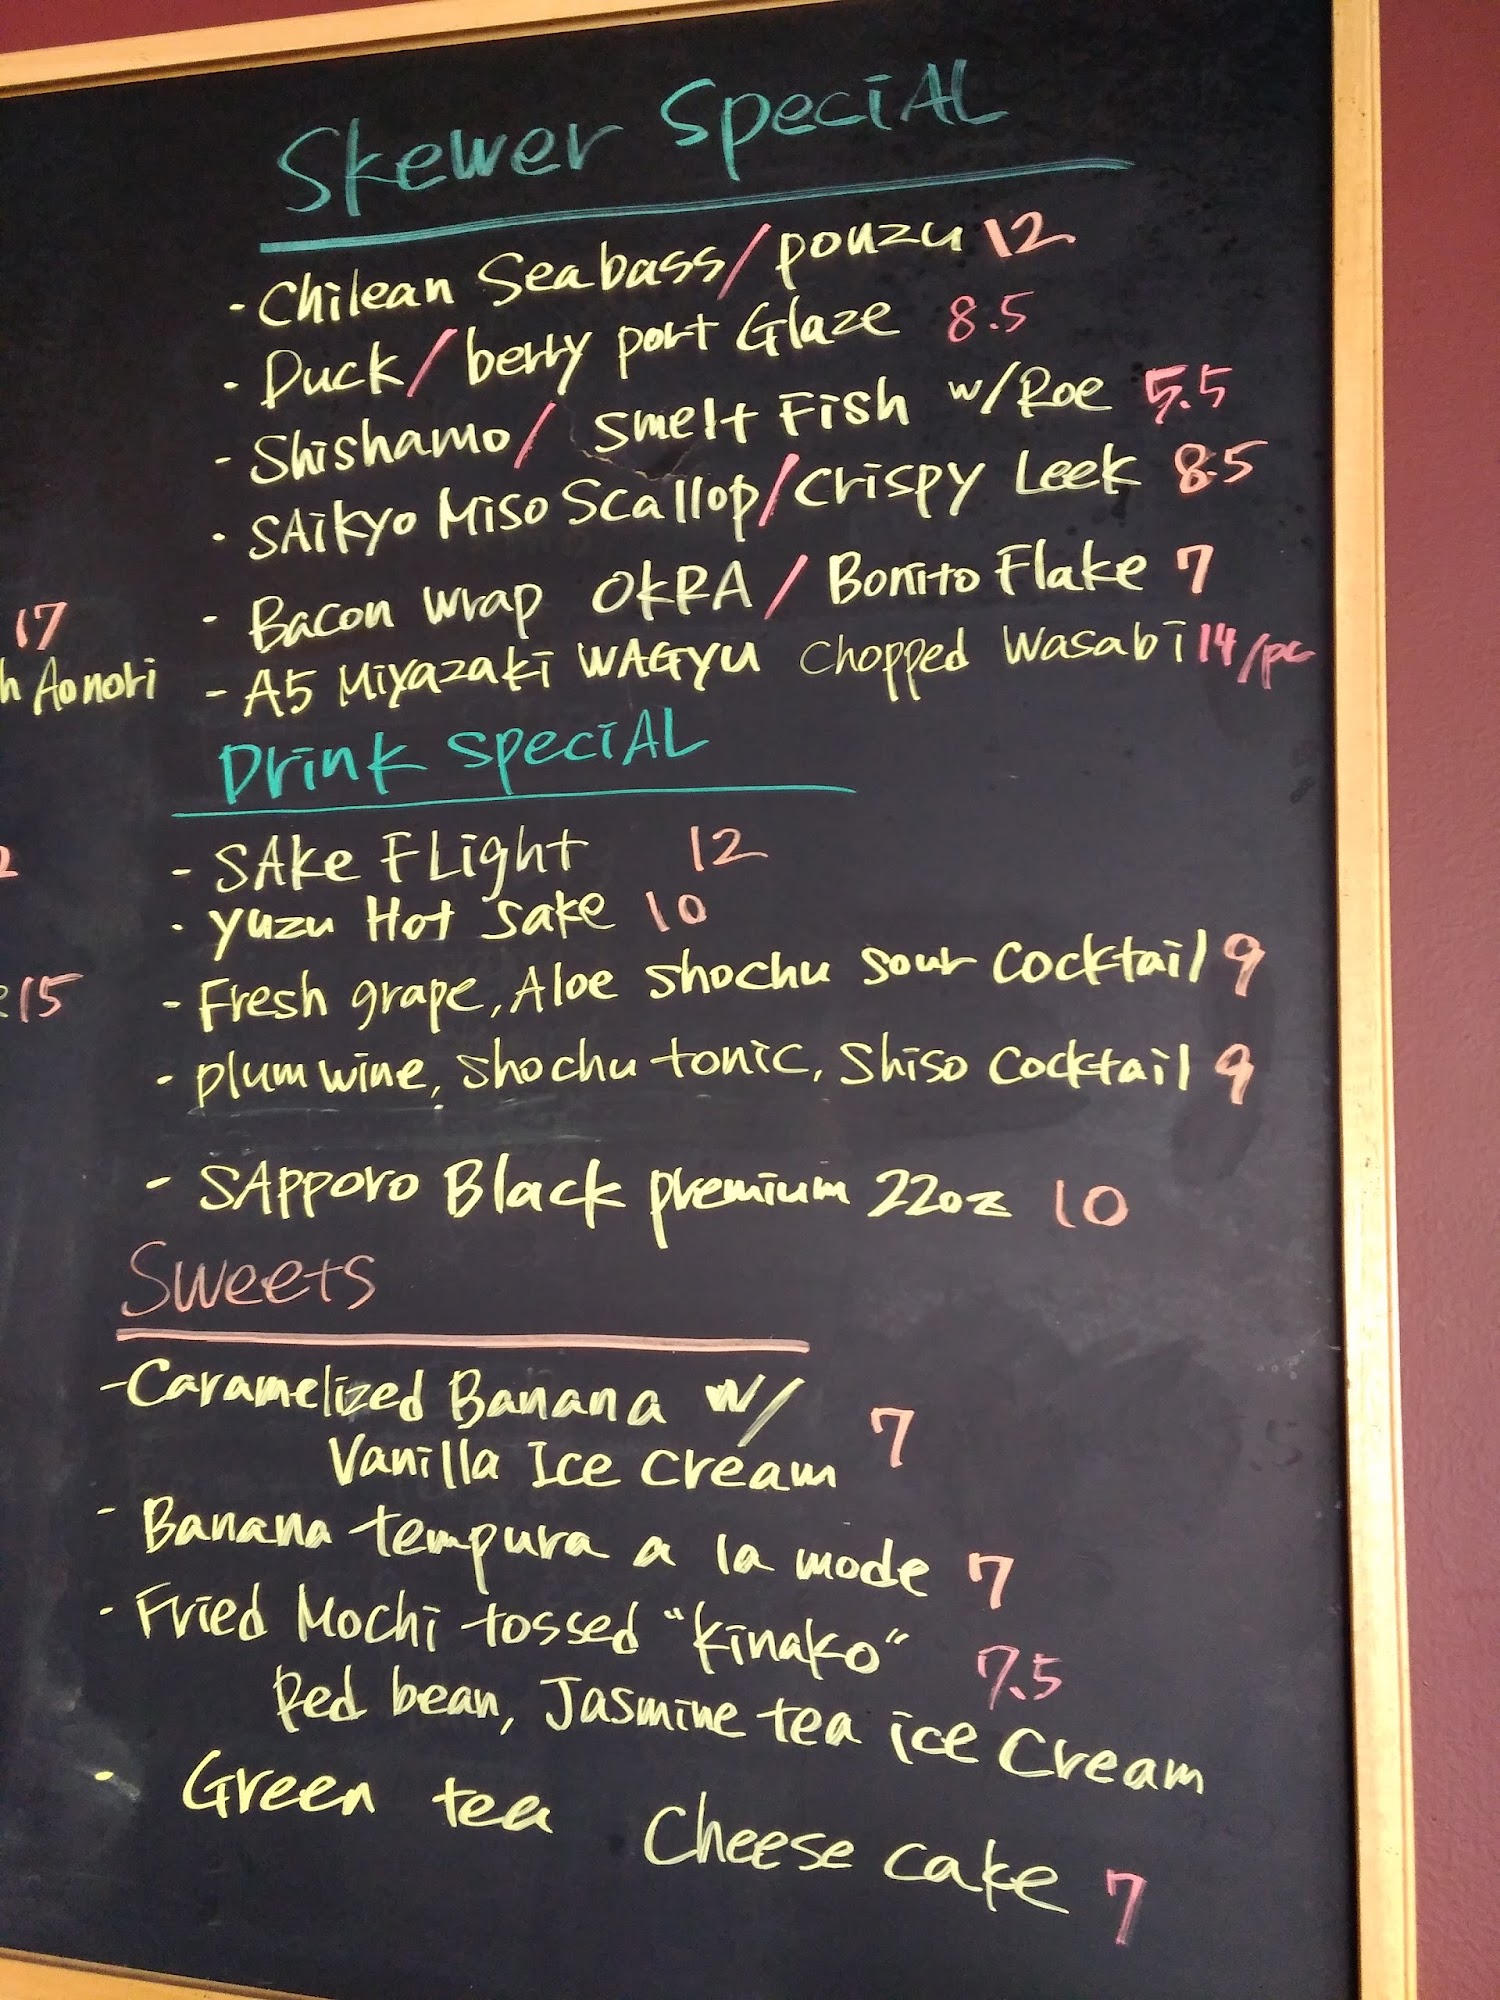 Skewer SpeciAL
- Chilean Seabass/ponzu 12
- Duck/berry port Glaze 8.5
- Shishamo/ Smelt Fish w/Roe 5.5
- SAikyo Miso Scallop/crispy Leek 8.5
- Bacon wrap OKRA/Bonito Flake 7
- A5 Miyazaki WAGYU chopped wasabi 14/pc
Drink SpeciAL
- SAke FLight 12
- yuzu Hot sake 10
- Fresh grape, Aloe shochu sour cocktail 9
- plum wine, shochu tonic, Shiso cocktail 9
- SApporo Black premium 22oz 10
Sweets
- Caramelized Banana w/ 7
Vanilla Ice cream
- Banana tempura a la mode 7
- Fried Mochi tossed "kinako" 7.5
Red bean, Jasmine tea ice cream
- Green tea Cheese cake 7
17
Aonori
15